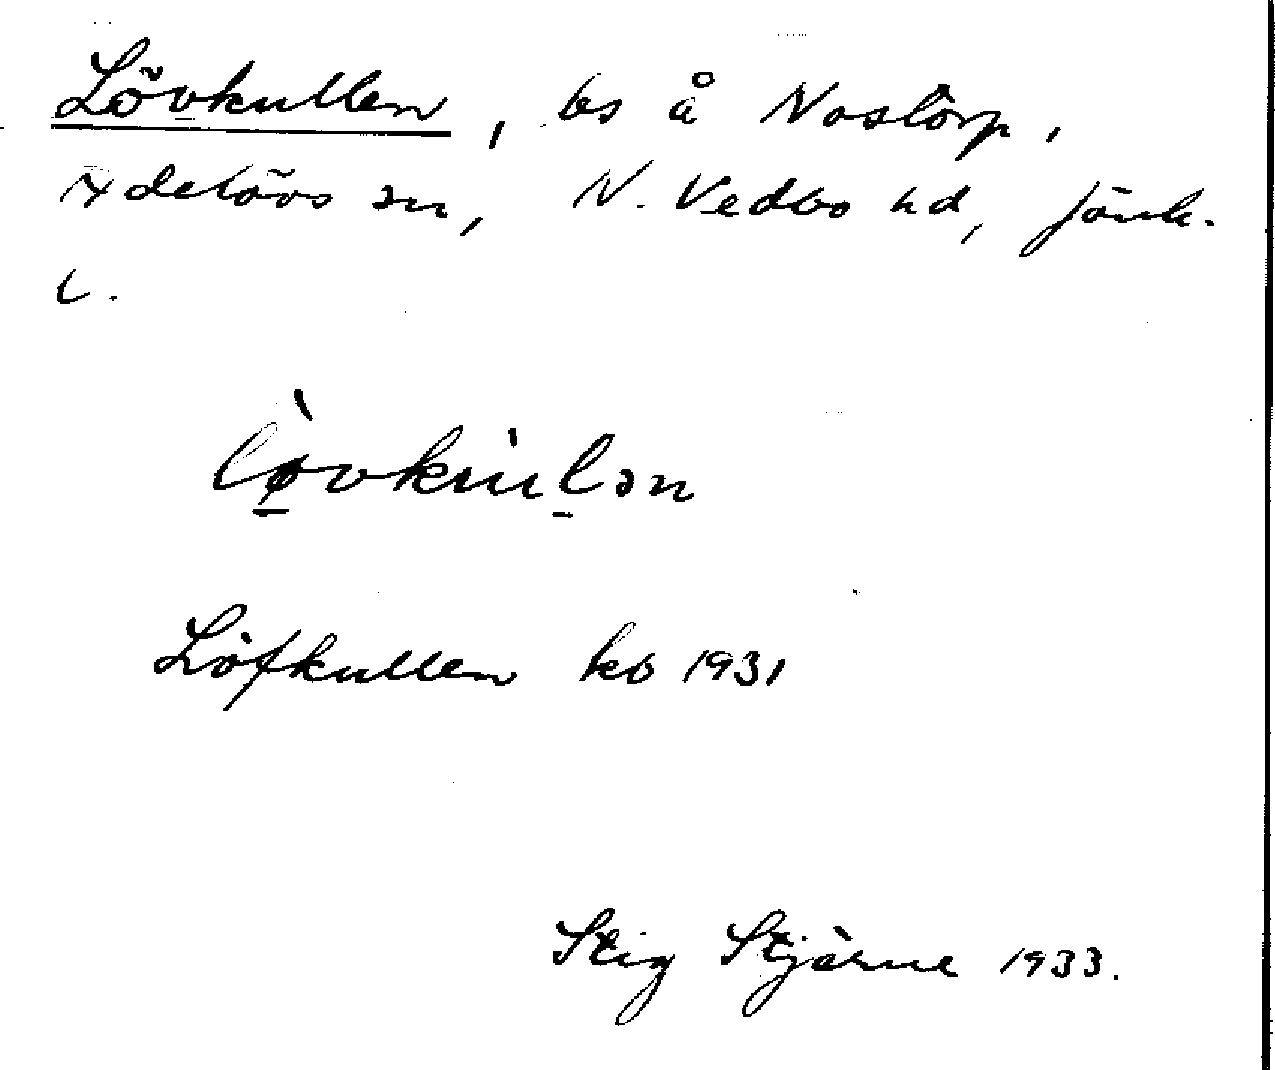 Lövkullen, bs å Nostorp,
Adelövs sn, N. Vedbo hd, Jönk.
l.
lø̀vkùlən
Löfkullen kb 1931
Stig Stjärne 1933.